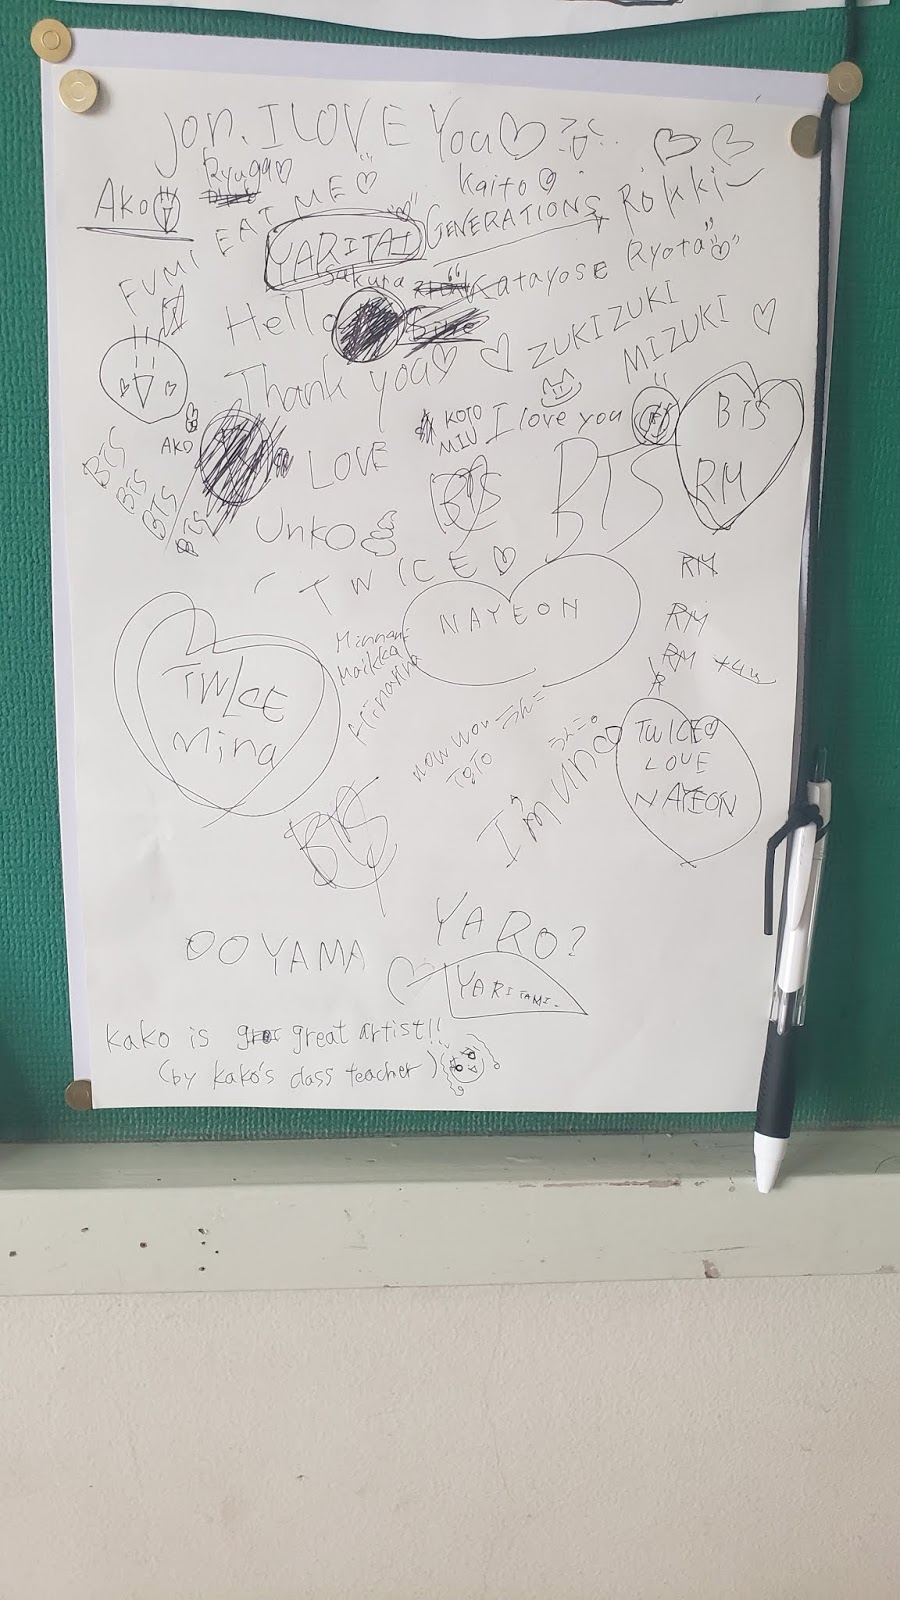 Jon. I LOVE You
Ryuga
Kaito
Ako
EAT ME
Rokki
YARITAI
GENERATIONS
FUMI
Sakura
Katayose
Ryota
Hello
ZUKIZUKI
MIZUKI
Thank you
AKO
KOTO
MIU
I love you
BTS
RM
BTS
BTS
BTS
BTS
LOVE
BTS
BTS
Unko
TWICE
RM
NAYEON
RM
RM
TWICE
Mina
wow wow うんこ
TOTO
うんこ。
I'm Unco
TWICE
LOVE
NAYEON
BTS
YARO?
OOYAMA
YARITAMI.
kako is great artist!!
(by kako's class teacher)